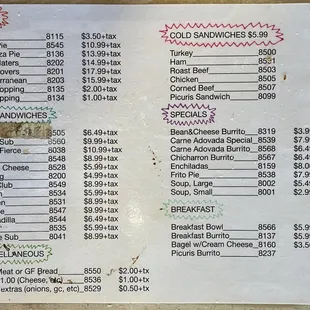 8115 $3.50+tax
Pie 8545 $10.99+tax
za Pie 8136 $13.99+tax
laters 8102 $14.99+tax
overs 8201 $17.99+tax
rranean 8203 $15.99+tax
opping 8135 $2.00+tax
opping 8134 $1.00+tax
ANDWICHES
8505 $6.49+tax
Sub 8560 $9.99+tax
Fierce 8038 $10.99+tax
8548 $5.99+tax
Cheese 8528 $5.99+tax
g 8200 $4.99+tax
Club 8549
8534 $5.99+tax
8531 $8.99+tax
adilla 8544 $6.49+tax
e Sub 8041 $8.99+tax
ELLANEOUS
Meat or GF Bread 8550 $2.00+tx
1.00 (Cheese, etc) 8536 $1.00+tx
extras (onions, gc, etc) 8529 $0.50+tx
COLD SANDWICHES $5.99
Turkey 8500
Ham 8531
Roast Beef 8503
Chicken 8505
Corned Beef 8507
Picuris Sandwich 8099
SPECIALS
Bean&Cheese Burrito 8319 $3.9
Carne Adovada Special 8539 $7.9
Carne Adovada Burrito 8568 $6.4
Chicharron Burrito 8567 $6.4
Enchiladas 8159 $8.0
Frito Pie 8538 $7.9
Soup, Large 8502 $5.4
Soup, Small 8001 $2.9
BREAKFAST
Breakfast Bowl 8566 $5.9
Breakfast Burrito 8137 $5.9
Bagel w/Cream Cheese 8160 $3.5
Picuris Burrito 8237